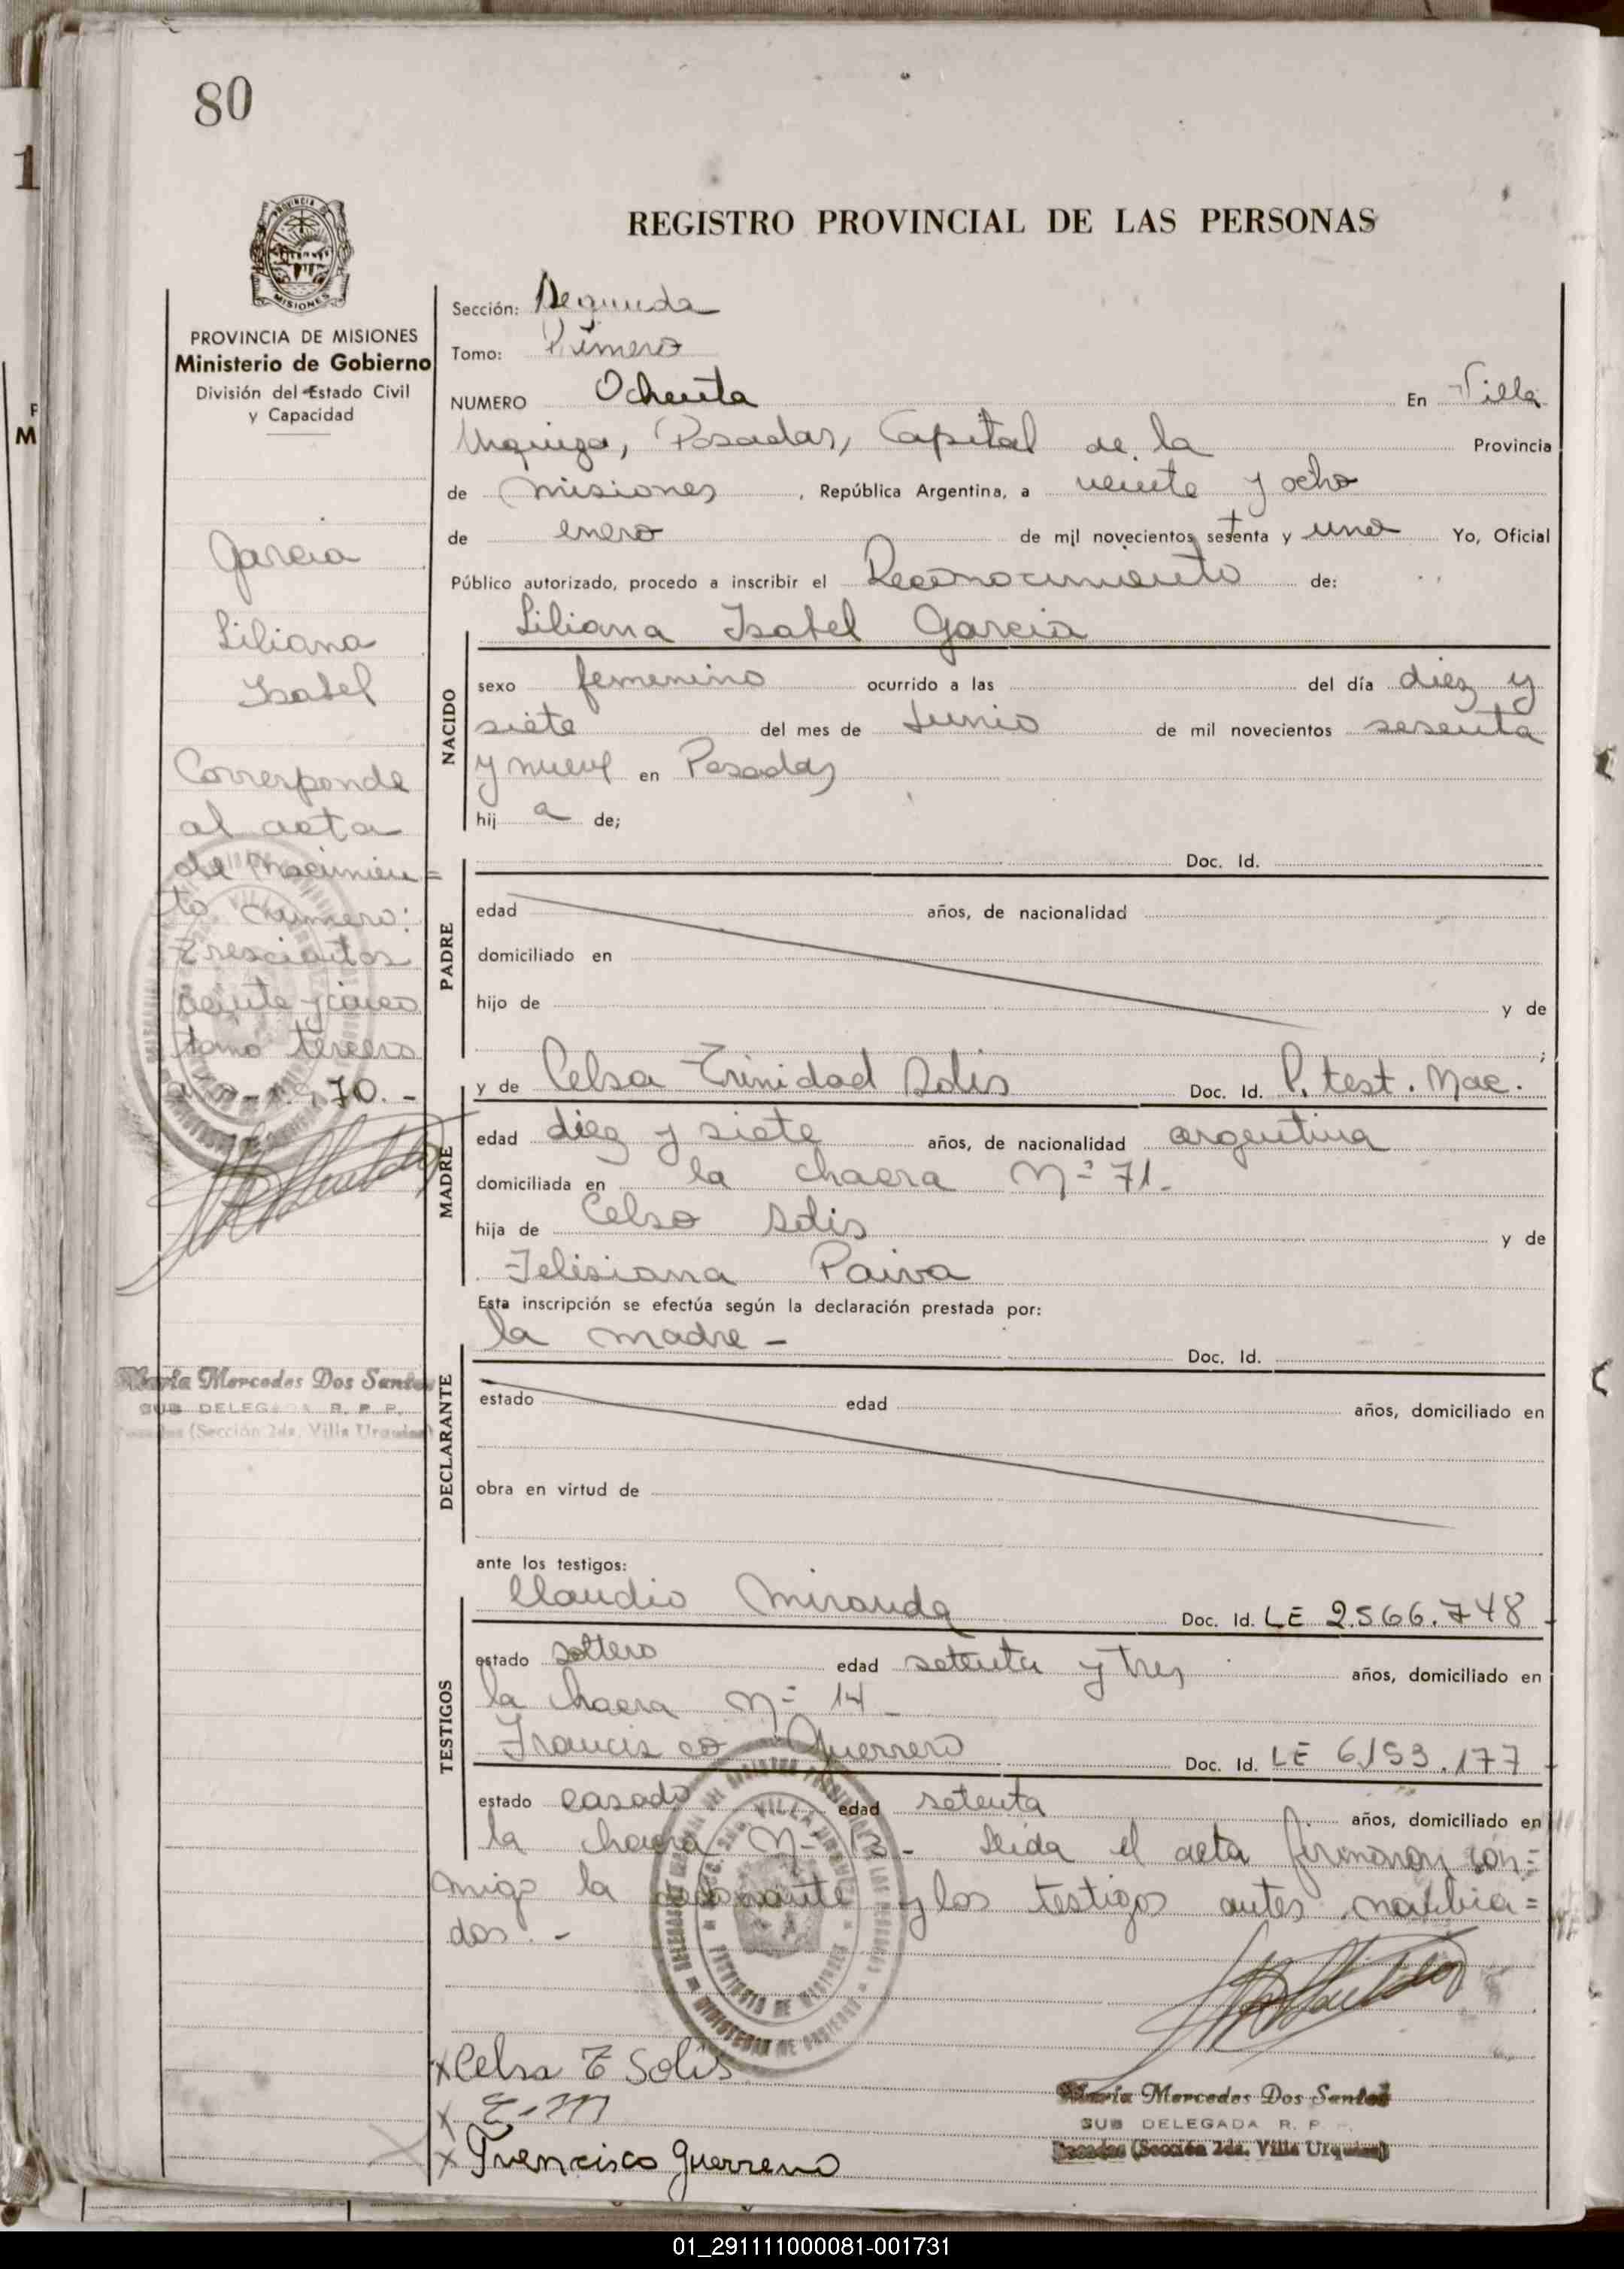 80
REGISTRO PROVINCIAL DE LAS PERSONAS
PROVINCIA DE MISIONES
Ministerio de Gobierno
División del Estado Civil
y Capacidad
Garcia
Liliana
Isabel
Corresponde
al acta
de nacimien=
to numero:
trescientos
veinte y cinco
tomo tercero
año - 1970. -
Maria Mercedes Dos Santos
SUB DELEGADA R. P. P.
Posadas (Sección 2da. Villa Urquiza)
Sección: Segunda
Tomo: Primero
NUMERO Ochenta En Villa
Urquiza, Posadas, Capital de la Provincia
de Misiones, República Argentina, a veinte y ocho
de enero de mil novecientos setenta y uno Yo, Oficial
Público autorizado, procedo a inscribir el Reconocimiento de:
Liliana Isabel Garcia
NACIDO
sexo femenino ocurrido a las del día diez y
siete del mes de Junio de mil novecientos sesenta
y nueve en Posadas
hij a de;
PADRE
Doc. Id.
edad años, de nacionalidad
domiciliado en
hijo de y de
;
MADRE
y de Celsa Trinidad Solis Doc. Id. P. test. Nac.
edad diez y siete años, de nacionalidad argentina
domiciliada en la chacra Nº 71.
hija de Celso Solis y de
Felisiana Paiva
Esta inscripción se efectúa según la declaración prestada por:
DECLARANTE
la madre - Doc. Id.
estado edad años, domiciliado en
obra en virtud de
ante los testigos:
TESTIGOS
Claudio Miranda Doc. Id. LE 2.566.748
estado soltero edad setenta y tres años, domiciliado en
la chacra Nº 14
Francisco Guerrero Doc. Id. LE 6.153.177
estado casado edad setenta años, domiciliado en
la chacra Nº 13- Leida el acta firmaron con=
migo la declarante y los testigos antes nombra=
dos. -
x Celsa T Solis
x
x Francisco guerrero
Maria Mercedes Dos Santos
SUB DELEGADA R. P.
Posadas (Sección 2da. Villa Urquiza)
01_291111000081-001731